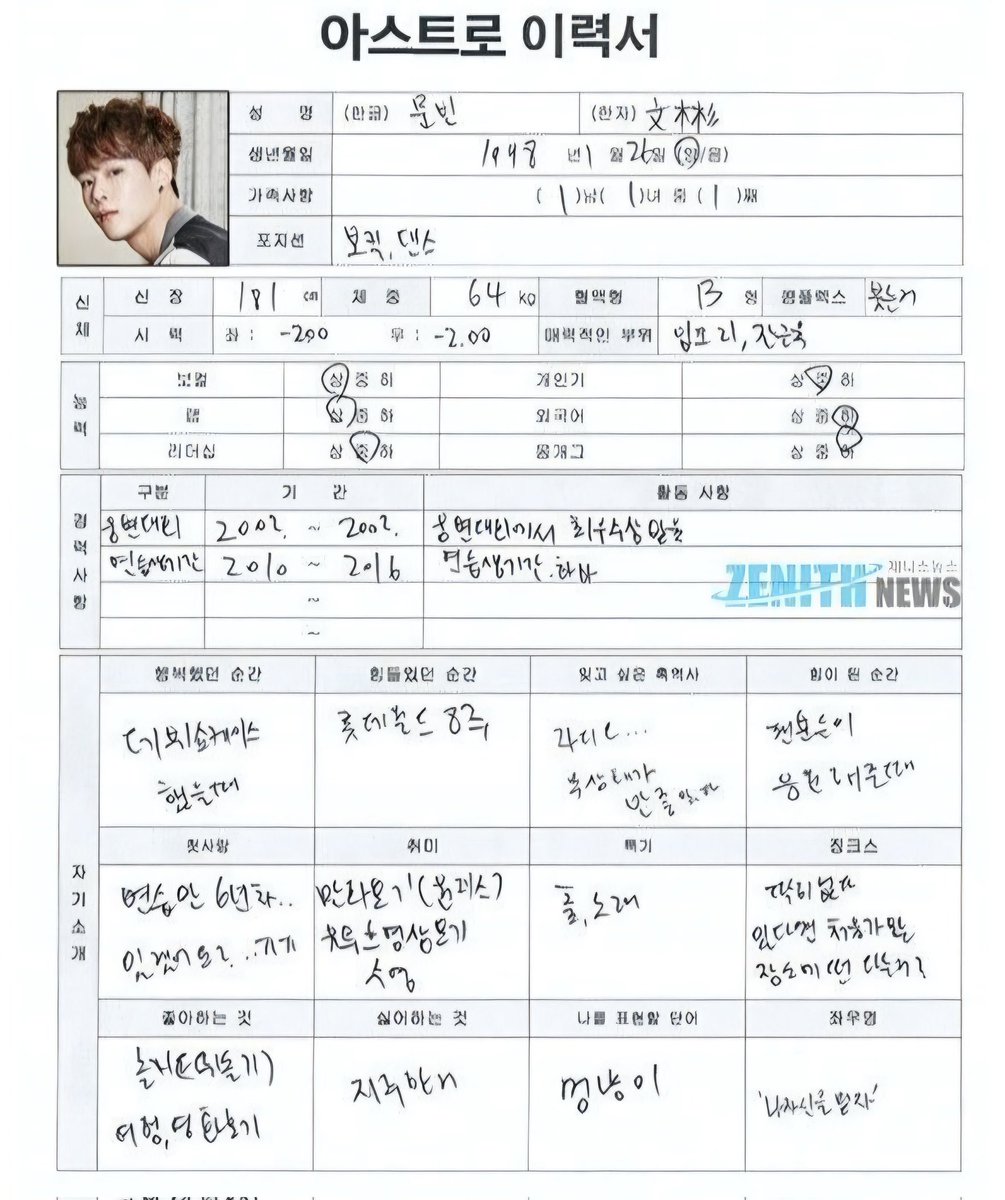 아스트로 이력서
성 명 (한글) 문빈 (한자) 文彬
생년월일 1998 년 1 월 26일 (양/음)
가족사항 ( 1 )남( 1 )녀 중 ( 1 )째
포지션 보컬, 댄스
신체
신 장 181 cm 체 중 64 kg 혈액형 B 형 콤플렉스 붓는거
시 력 좌 : -2.00 우 : -2.00 매력적인 부위 입꼬리, 잔근육
능력
보컬 상 중 하 개인기 상 중 하
랩 상 중 하 외국어 상 중 하
리더십 상 중 하 몸개그 상 중 하
경력사항
구분 기 간 활동 사항
웅변대회 2002. ~ 2002. 웅변대회에서 최우수상 받음
연습생기간 2010 ~ 2016 연습생기간
~
~
ZENITH NEWS 제니스뉴스
자기소개
행복했던 순간 힘들었던 순간 잊고 싶은 흑역사 힘이 된 순간
데뷔쇼케이스
했을때
롯데월드 8주
라디오...
목상태가
팬분들이
응원해줄때
첫사랑 취미 특기 징크스
연습만 6년차..
만화보기(원피스)
유투브영상보기
수영
춤, 노래
딱히 없다
있다면 처음가보는
좋아하는 것 싫어하는 것 나를 표현할 단어 좌우명
여행, 영화보기
멍냥이
'나자신을 믿자'